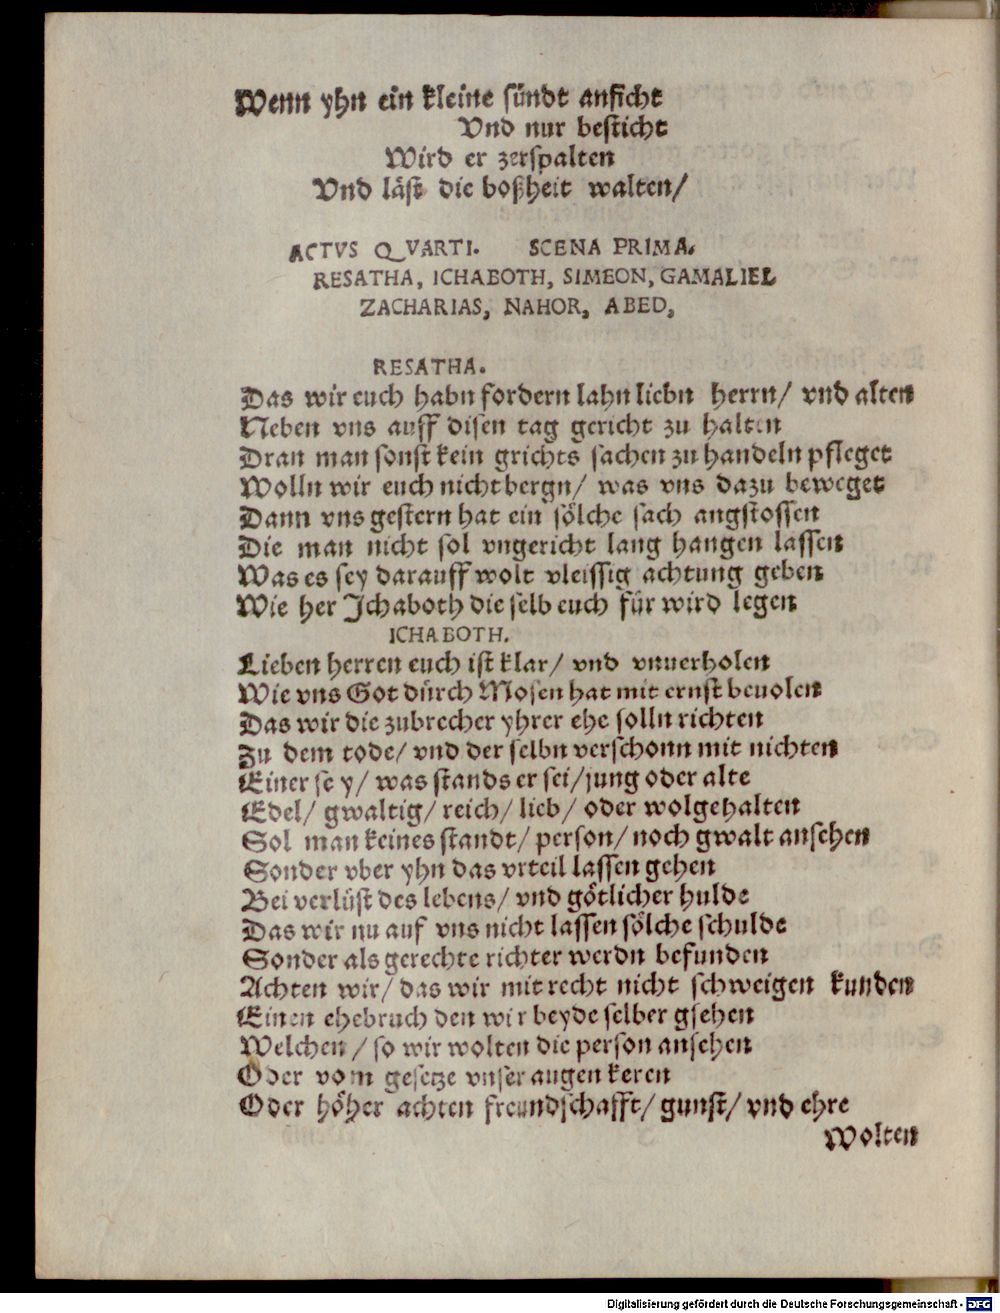 Wenn yhn ein kleine sündt anficht
Vnd nur besticht
Wird er zerspalten
Vnd läst die boßheit walten/
ACTVS QVARTI. SCENA PRIMA.
RESATHA, ICHABOTH, SIMEON, GAMALIEL
ZACHARIAS, NAHOR, ABED,
RESATHA.
Das wir euch habn fordern lahn liebn herrn/ vnd alten
Neben vns auff disen tag gericht zu halten
Dran man sonst kein grichts sachen zu handeln pfleget
Wolln wir euch nicht bergn/ was vns dazu beweget
Dann vns gestern hat ein sölche sach angstossen
Die man nicht sol vngericht lang hangen lassen
Was es sey darauff wolt vleissig achtung geben
Wie her Ichaboth die selb euch für wird legen
ICHABOTH.
Lieben herren euch ist klar/ vnd vnuerholen
Wie vns Got dürch Mosen hat mit ernst beuolen
Das wir die zubrecher yhrer ehe solln richten
Zu dem tode/ vnd der selbn verschonn mit nichten
Einer se y/ was stands er sei/ jung oder alte
Edel/ gwaltig/ reich/ lieb/ oder wolgehalten
Sol man keines standt/ person/ noch gwalt ansehen
Sonder vber yhn das vrteil lassen gehen
Bei verlüst des lebens/ vnd götlicher hulde
Das wir nu auf vns nicht lassen sölche schulde
Sonder als gerechte richter werdn befunden
Achten wir/ das wir mit recht nicht schweigen kunden
Einen ehebruch den wir beyde selber gsehen
Welchen/ so wir wolten die person ansehen
Oder vom gesetze vnser augen keren
Oder höher achten freundschafft/ gunst/ vnd ehre
Wolten
Digitalisierung gefördert durch die Deutsche Forschungsgemeinschaft - DFG